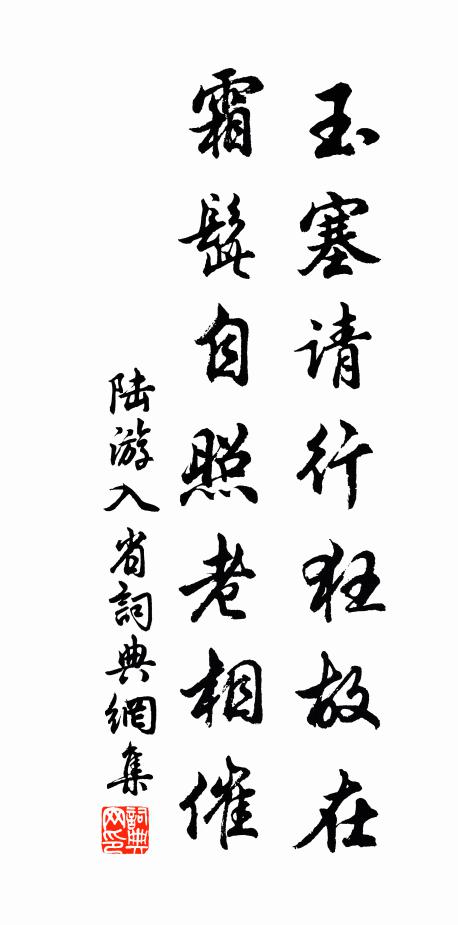 玉塞请行狂故在
霜髭自照老相催
陆游入省詞典網集
詞典网印